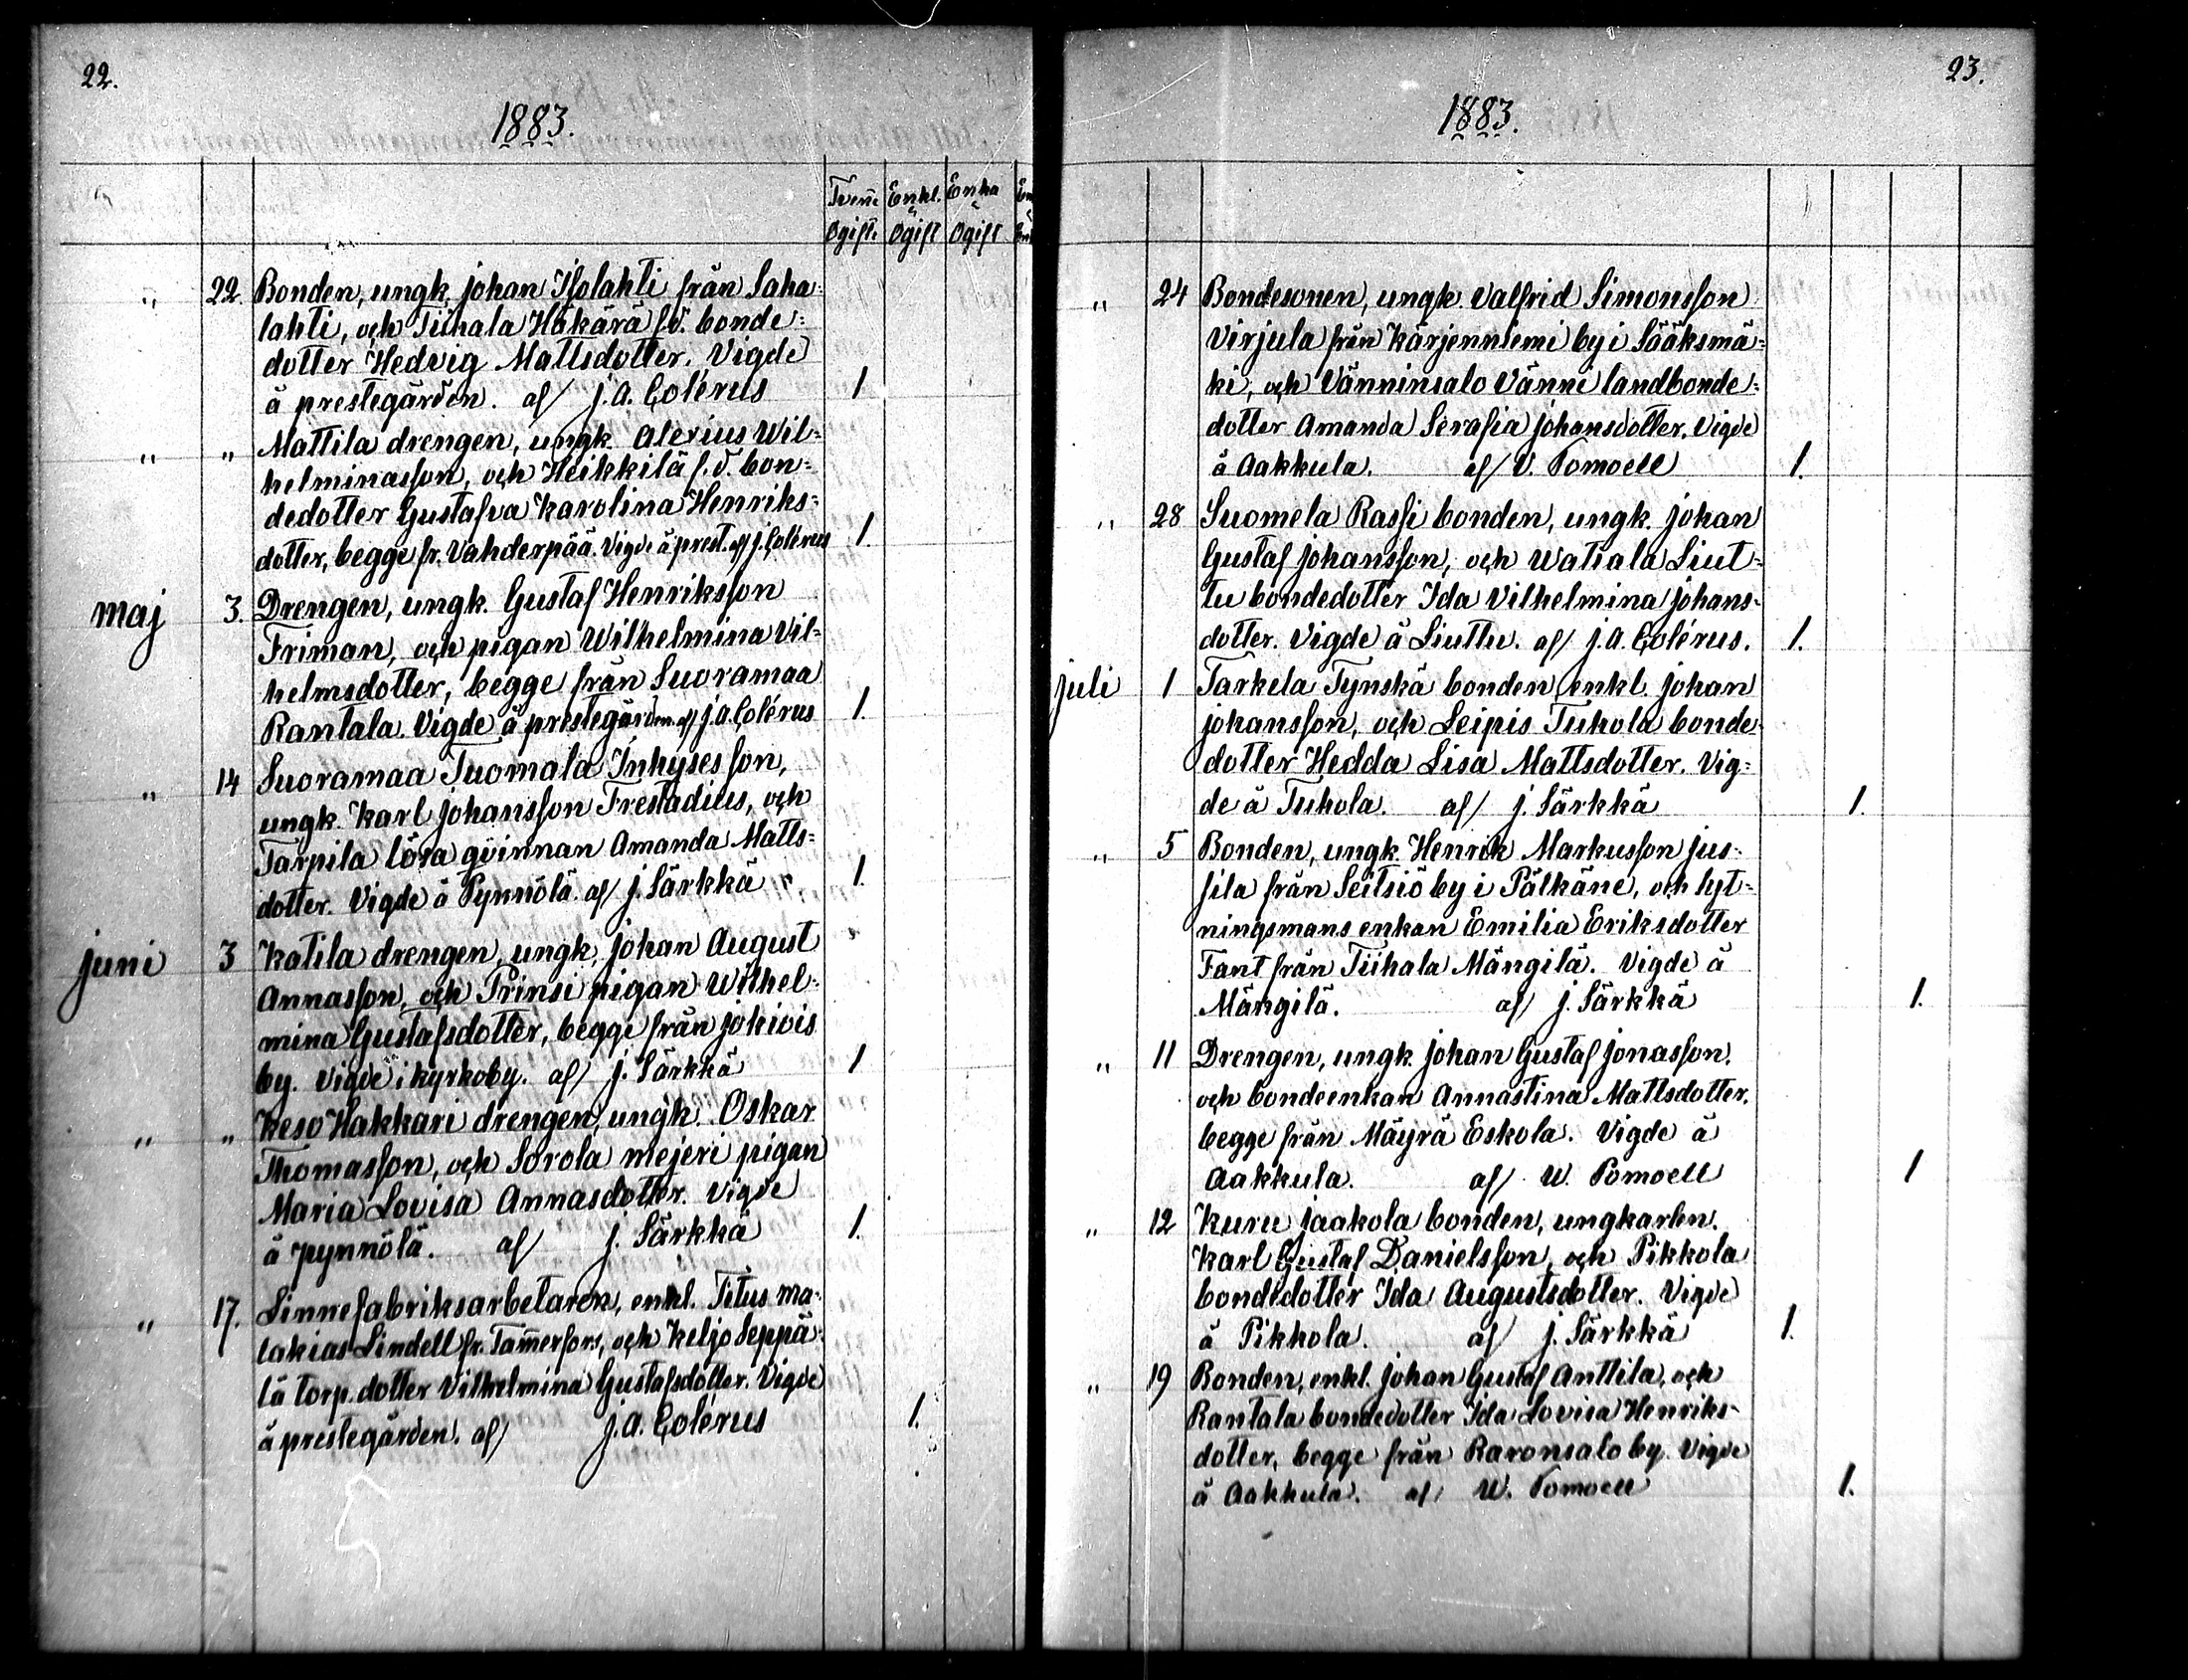 22.
1883.
Tvenne Enkl. Enka
Ogifte Ogift Ogift
" 22. Bonden, ungk. Johan Isolahti från Saha-
lahti, och Tiihala Hakärä f.d. bonde-
dotter Hedvig Mattsdotter. Vigde
å prestegården. af J. A. Colérus 1
" " Mattila drengen, ungk. Alexius Wil-
helminasson, och Heikkilä f.d. bon-
dedotter Gustafva Karolina Henriks-
dotter, begge fr. Vahderpää. Vigde å prest. af J. Colérus 1.
Maj 3. Drengen, ungk. Gustaf Henriksson
Friman, och pigan Wilhelmina Vil-
helmsdotter, begge från Suoramaa
Rantala. Vigde å prestegården. af J. A. Colérus 1.
" 14 Suoramaa Tuomala Inhyses son,
ungk. Karl Johansson Frestadius, och
Tarpila lösa qvinnan Amanda Matts-
dotter. Vigde å Pynnölä. af J. Särkkä 1.
Juni 3 Katila drengen, ungk. Johan August
Annasson, och Prinsi pigan Wilhel-
mina Gustafsdotter, begge från Jokiois
by. Vigde i kyrkoby. af J. Särkkä 1
" " Keso Hakkari drengen, ungk. Oskar
Thomasson, och Sorola mejeri pigan
Maria Lovisa Annasdotter. Vigde
å Pynnölä. af J. Särkkä 1.
" 17. Linnefabriksarbetaren, enkl. Titus Ma-
lakias Lindell fr. Tammerfors, och Keljo Seppä-
lä torp. dotter Vilhelmina Gustafsdotter. Vigde
å prestegården. af J. A. Colérus 1.
23.
1883.
" 24 Bondesonen, ungk. Valfrid Simonsson
Virjula från Kärjenniemi by i Sääksmä-
ki, och Vänninsalo Vänni landbonde-
dotter Amanda Serafia Johansdotter. Vigde
å Aakkula. af V. Pomoell 1.
" 28 Suomela Rassi bonden, ungk. Johan
Gustaf Johansson, och Watiala Liut-
tu bondedotter Ida Vilhelmina Johans-
dotter. Vigde å Liuttu. af J. A. Colérus. 1.
Juli 1 Tarkela Tynskä bonden, enkl. Johan
Johansson, och Leipis Tuhola bonde-
dotter Hedda Lisa Mattsdotter. Vig-
de å Tuhola. af J. Särkkä 1.
" 5 Bonden, ungk. Henrik Markusson Jus-
sila från Seitsiö by i Pälkäne, och hyt-
ningsmans enkan Emilia Eriksdotter
Fant från Tiihala Mängilä. Vigde å
Mängilä. af J. Särkkä 1.
" 11 Drengen, ungk. Johan Gustaf Jonasson,
och bondeenkan Annastina Mattsdotter,
begge från Mäyrä Eskola. Vigde å
Aakkula. af W. Pomoell 1
" 12 Kuru Jaakola bonden, ungkarlen,
Karl Gustaf Danielsson, och Pikkola
bondedotter Ida Augustsdotter. Vigde
å Pikkola. af J. Särkkä 1.
" 19 Bonden, enkl. Johan Gustaf Anttila, och
Rantala bondedotter Ida Lovisa Henriks-
dotter, begge från Raronsalo by. Vigde
å Aakkula. af W. Pomoell 1.